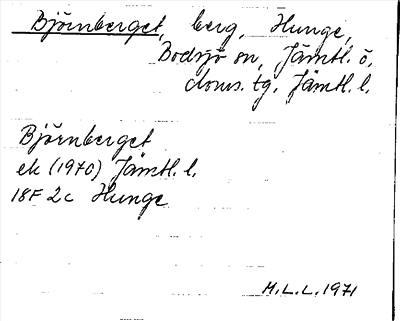 Björnberget, berg, Hunge,
Bodsjö sn, Jämtl. ö.
doms. tg. Jämtl. l.
Björnberget
ek (1970) Jämtl. l.
18F 2c Hunge
M.L.L. 1971